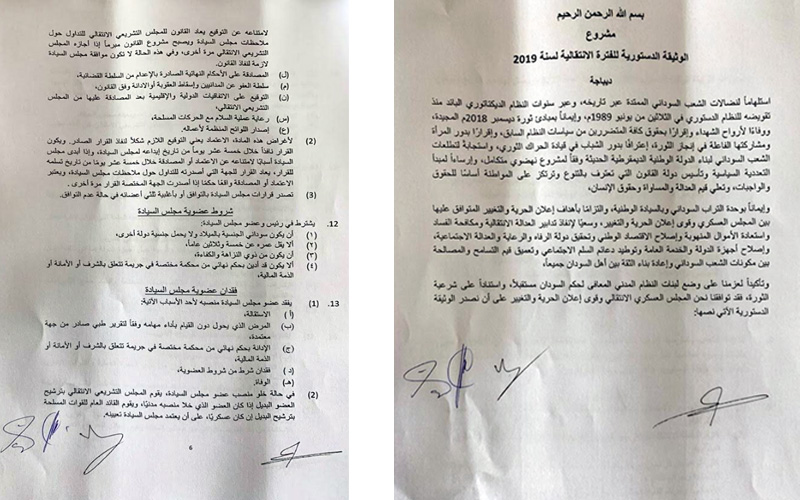 بسم الله الرحمن الرحيم
مشروع
الوثيقة الدستورية للفترة الانتقالية لسنة 2019
ديباجة
استلهاماً لنضالات الشعب السوداني الممتدة عبر تاريخه، وعبر سنوات النظام الديكتاتوري البائد منذ
تقويضه للنظام الدستوري في الثلاثين من يونيو 1989م، وإيماناً بمبادئ ثورة ديسمبر 2018م المجيدة،
ووفاءً لأرواح الشهداء وإقرارًا بحقوق كافة المتضررين من سياسات النظام السابق، وإقرارًا بدور المرأة
ومشاركتها الفاعلة في إنجاز الثورة، إعترافًا بدور الشباب في قيادة الحراك الثوري، واستجابة لتطلعات
الشعب السوداني لبناء الدولة الوطنية الديمقراطية الحديثة وفقاً لمشروع نهضوي متكامل، وإرساءاً لمبدأ
التعددية السياسية وتأسيس دولة القانون التي تعترف بالتنوع وترتكز على المواطنة أساسًا للحقوق
والواجبات، وتعلي قيم العدالة والمساواة وحقوق الإنسان،
وإيماناً بوحدة التراب السوداني وبالسيادة الوطنية، والتزامًا بأهداف إعلان الحرية والتغيير المتوافق عليها
بين المجلس العسكري وقوى إعلان الحرية والتغيير، وسعيًا لإنفاذ تدابير العدالة الانتقالية ومكافحة الفساد
واستعادة الأموال المنهوبة وإصلاح الاقتصاد الوطني وتحقيق دولة الرفاه والرعاية والعدالة الاجتماعية،
وإصلاح أجهزة الدولة والخدمة العامة وتوطيد دعائم السلم الاجتماعي وتعميق قيم التسامح والمصالحة
بين مكونات الشعب السوداني وإعادة بناء الثقة بين أهل السودان جميعاً،
وتأكيداً لعزمنا على وضع لبنات النظام المدني المعافى لحكم السودان مستقبلاً، واستناداً على شرعية
الثورة، فقد توافقنا نحن المجلس العسكري الانتقالي وقوى إعلان الحرية والتغيير على أن نصدر الوثيقة
الدستورية الآتي نصها:
لامتناعه عن التوقيع يعاد القانون للمجلس التشريعي الانتقالي للتداول حول
ملاحظات مجلس السيادة ويصبح مشروع القانون مبرماً إذا أجازه المجلس
التشريعي الانتقالي مرة أخرى، وفي هذه الحالة لا تكون موافقة مجلس السيادة
لازمة لنفاذ القانون.
(ل) المصادقة على الأحكام النهائية الصادرة بالإعدام من السلطة القضائية،
سلطة العفو عن المدانيين وإسقاط العقوبة أوالإدانة وفق القانون،
(ن) التوقيع على الاتفاقيات الدولية والإقليمية بعد المصادقة عليها من المجلس
التشريعي الانتقالي،
(س) رعاية عملية السلام مع الحركات المسلحة،
(ع) إصدار اللوائح المنظمة لأعماله.
(2) لأغراض هذه المادة، الاعتماد يعني التوقيع اللازم شكلاً لنفاذ القرار الصادر. ويكون
القرار نافذًا خلال خمسة عشر يوماً من تاريخ إيداعه لمجلس السيادة، وإذا أبدى مجلس
السيادة أسبابًا لامتناعه عن الاعتماد أو المصادقة خلال خمسة عشر يومًا من تاريخ تسلمه
للقرار، يعاد القرار للجهة التي أصدرته للتداول حول ملاحظات مجلس السيادة، ويعتبر
الاعتماد أو المصادقة واقعًا حكمًا إذا أصدرت الجهة المختصة القرار مرة أخرى.
(3) تصدر قرارات مجلس السيادة بالتوافق أو بأغلبية ثلثي أعضائه في حالة عدم التوافق.
شروط عضوية مجلس السيادة
12. يشترط في رئيس وعضو مجلس السيادة:
(1) أن يكون سوداني الجنسية بالميلاد ولا يحمل جنسية دولة أخرى،
(2) ألا يقل عمره عن خمسة وثلاثين عاماً،
(3) أن يكون من ذوي النزاهة والكفاءة،
(4) ألا يكون قد أدين بحكم نهائي من محكمة مختصة في جريمة تتعلق بالشرف أو الأمانة أو
الذمة المالية،
فقدان عضوية مجلس السيادة
13. (1) يفقد عضو مجلس السيادة منصبه لأحد الأسباب الآتية:
(أ) الاستقالة،
(ب) المرض الذي يحول دون القيام بأداء مهامه وفقاً لتقرير طبي صادر من جهة
معتمدة،
(ج) الإدانة بحكم نهائي من محكمة مختصة في جريمة تتعلق بالشرف أو الأمانة أو
الذمة المالية،
(د) فقدان شرط من شروط العضوية،
(هـ) الوفاة.
(2) في حالة خلو منصب عضو مجلس السيادة، يقوم المجلس التشريعي الانتقالي بترشيح
العضو البديل إذا كان العضو الذي خلا منصبه مدنيًا، ويقوم القائد العام للقوات المسلحة
بترشيح البديل إن كان عسكريًا، على أن يعتمد مجلس السيادة تعيينه.
6